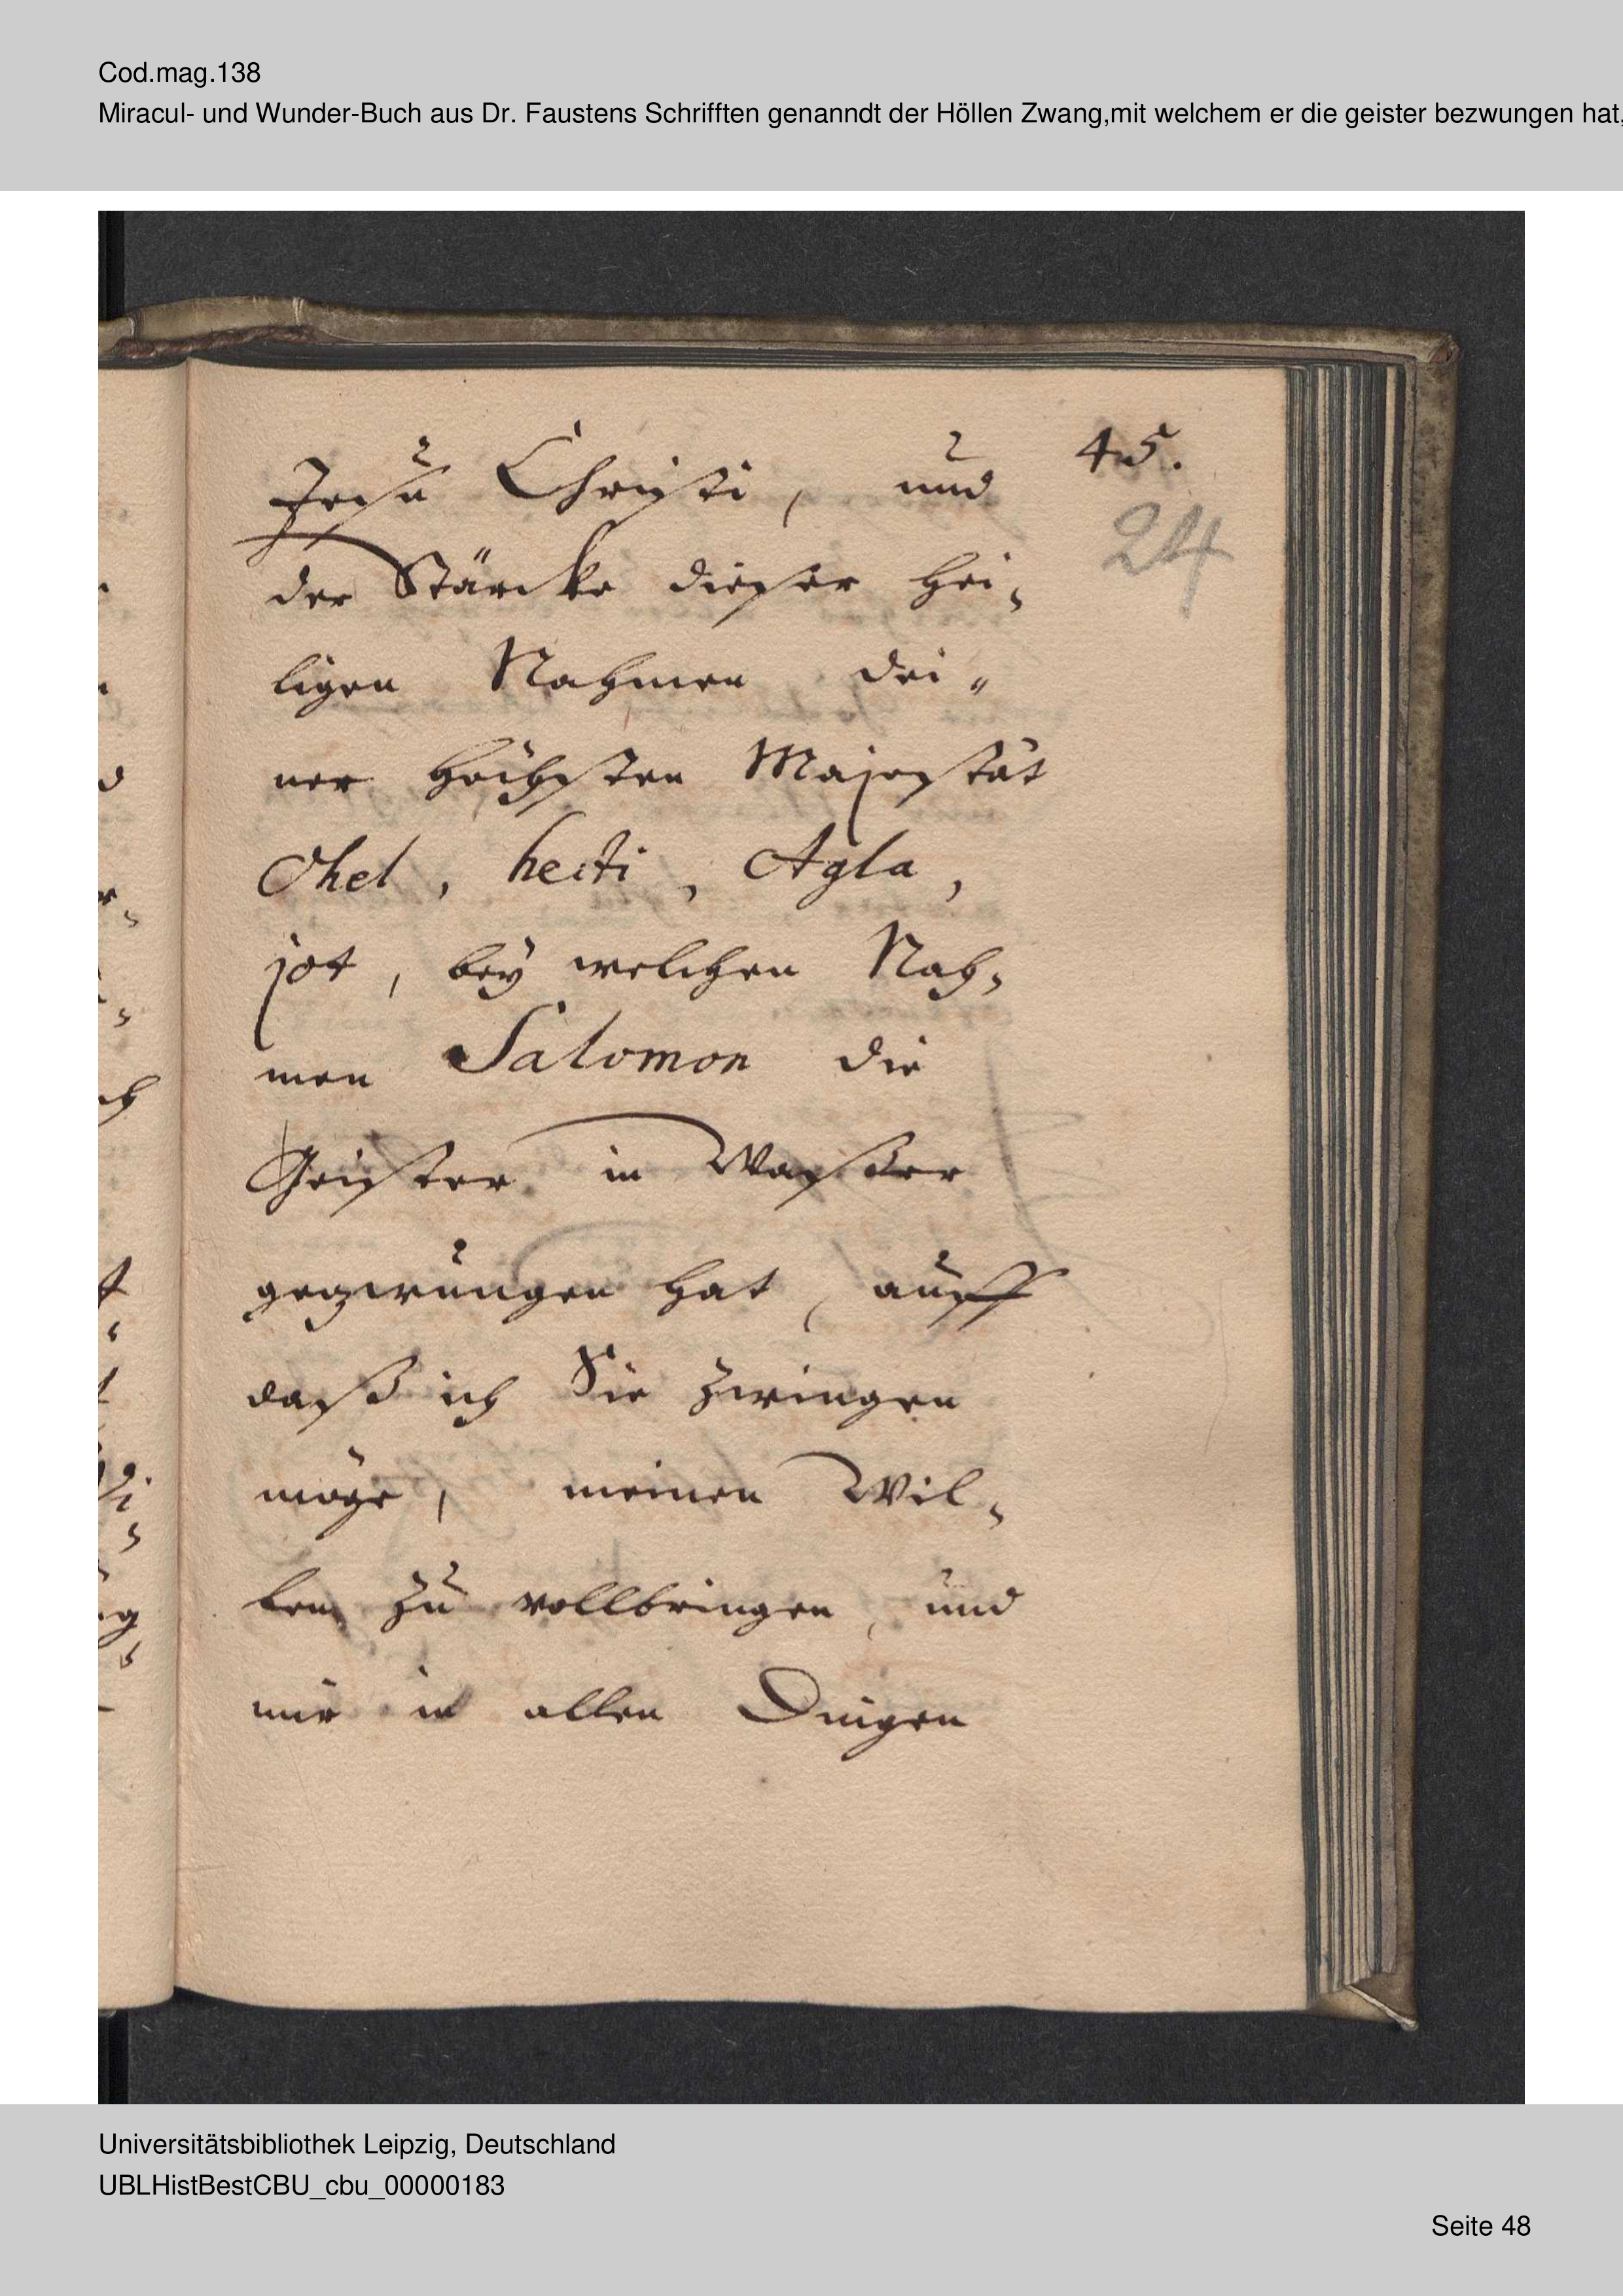 Cod.mag.138
Miracul- und Wunder-Buch aus Dr. Faustens Schrifften genanndt der Höllen Zwang,mit welchem er die geister bezwungen hat,
45.
24
Jesu Christi, und
der Stärcke dieser Hei-
ligen Nahmen dei-
ner Höchsten Majestät
Ohel, hecti, Agla,
jot, bey welchen Nah-
men Salomon die
Geister in Wasser
gezwungen hat, auff
daß ich Sie zwingen
möge, meinen Wil-
len zu vollbringen, und
mir in allen Dingen
Universitätsbibliothek Leipzig, Deutschland
UBLHistBestCBU_cbu_00000183
Seite 48